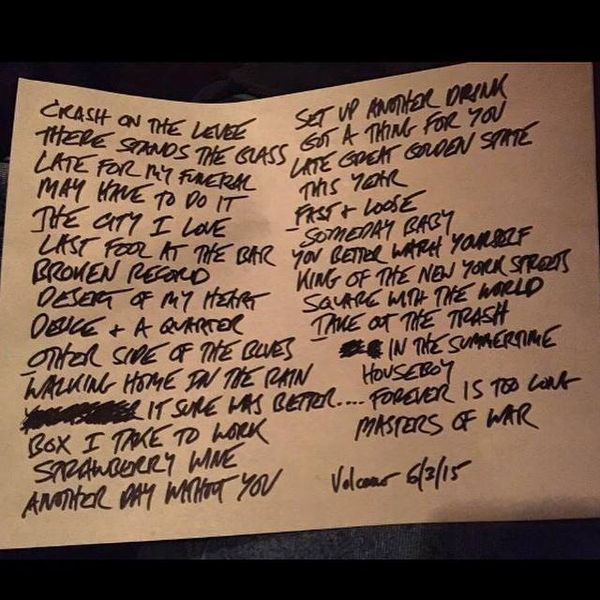 CRASH ON THE LEVEE
THERE STANDS THE GLASS
LATE FOR MY FUNERAL
MAY HAVE TO DO IT
THE CITY I LOVE
LAST FOOL AT THE BAR
BROKEN RECORD
DESERT OF MY HEART
DEUCE + A QUARTER
OTHER SIDE OF THE BLUES
WALKING HOME IN THE RAIN
IT SURE WAS BETTER....
BOX I TAKE TO WORK
STRAWBERRY WINE
ANOTHER DAY WITHOUT YOU
SET UP ANOTHER DRINK
GOT A THING FOR YOU
LATE GREAT GOLDEN STATE
THIS YEAR
FAST + LOOSE
SOMEDAY BABY
YOU BETTER WATCH YOURSELF
KING OF THE NEW YORK STREETS
SQUARE WITH THE WORLD
TAKE OUT THE TRASH
IN THE SUMMERTIME
HOUSEBOY
FOREVER IS TOO LONG
MASTERS OF WAR
Volcano 6/3/15